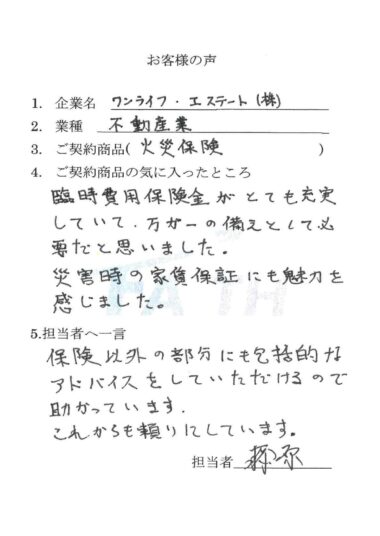 お客様の声
1. 企業名 ワンライフ・エステート(株)
2. 業種 不動産業
3. ご契約商品( 火災保険 )
4. ご契約商品の気に入ったところ
臨時費用保険金がとても充実
していて、万が一の備えとして必
要だと思いました。
災害時の家賃保証にも魅力を
感じました。
5.担当者へ一言
保険以外の部分にも包括的な
アドバイスをしていただけるので
助かっています.
これからも頼りにしています。
担当者